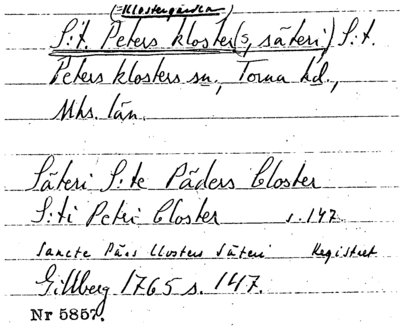 (=Klostergården)
S:t. Peters kloster(s, säteri) S:t.
Peters klosters sn., Torna hd.,
Mhs. län.
Säteri S:te Päders Closter
S:ti Petri Closter s. 147.
Sancte Pärs Closters Säteri Registret
Gillberg 1765 s. 147.
Nr 5857.